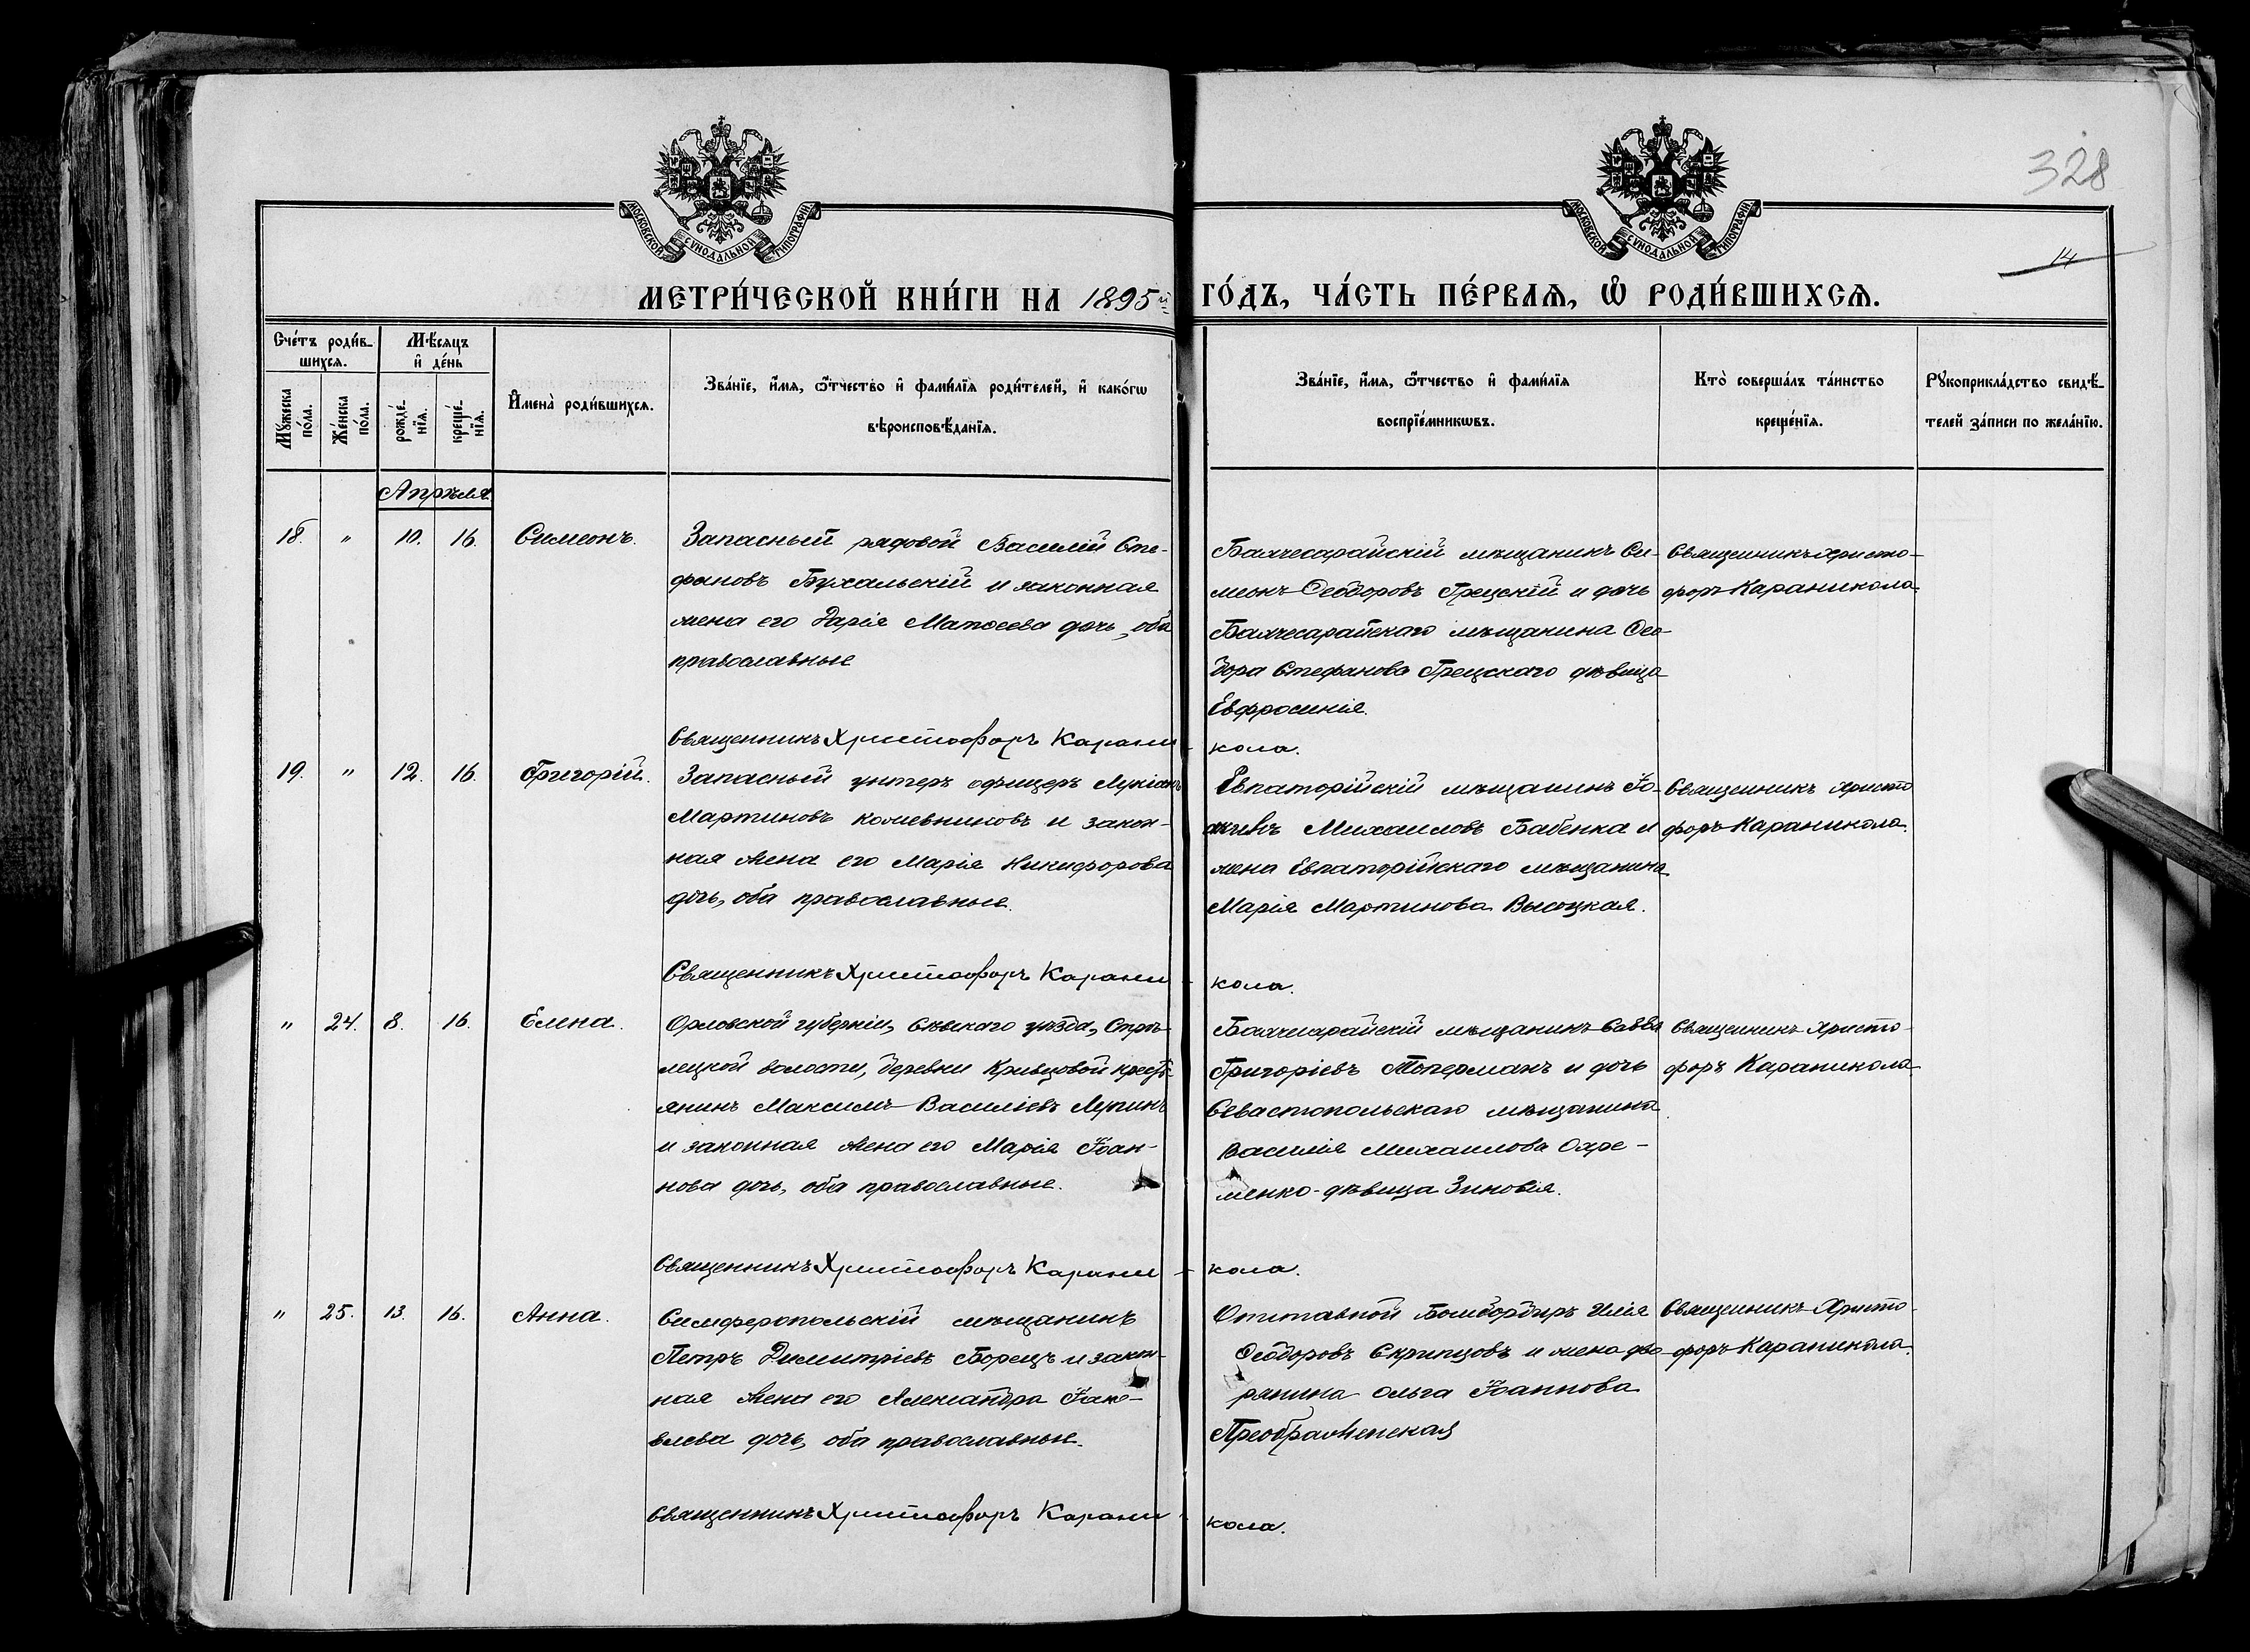 МОСКОВСКОЙ СУНОДАЛЬНОЙ ТИПОГРАФІИ
МОСКОВСКОЙ СУНОДАЛЬНОЙ ТИПОГРАФІИ
328
14
МЕТРИ́ЧЕСКОЙ КНИ́ГИ НА 1895й ГО́ДЪ, ЧА́СТЬ ПЕ́РВАѦ, Ѡ҆ РОДИ́ВШИХСѦ.
Сче́тъ роди́в-
шихсѧ.
Мꙋ́жеска
по́ла.
Же́нска
по́ла.
Мѣ́сѧцъ
и҆ де́нь
рожде́-
нїѧ.
креще́-
нїѧ.
И҆мена̀ роди́вшихсѧ.
Зва́нїе, и҆́мѧ, ѻ҆́тчество и҆ фами́лїѧ роди́телей, и҆ како́гѡ
вѣроисповѣ́данїѧ.
Зва́нїе, и҆́мѧ, ѻ҆́тчество и҆ фами́лїѧ
воспрїе́мникѡвъ.
Кто̀ соверша́лъ та́инство
креще́нїѧ.
Рꙋкоприкла́дство свидѣ́-
телей за́писи по жела́нїю.
Апрѣля
18. " 10. 16. Симеонъ.
Запасный рядовой Василій Сте-
фановъ Бухальскій и законная
жена его Дарія Матѳеева дочь, оба
православные
Бахчесарайскій мѣщанинъ Си-
меонъ Ѳеодоровъ Грецскій и дочь
Бахчесарайскаго мѣщанина Ѳео-
дора Стефанова Грецскаго дѣвица
Евфросинія.
Священникъ Христо-
форъ Караникола
Священникъ Христофоръ Карани-кола.
19. " 12. 16. Григорій.
Запасный унтеръ офицеръ Лукіанъ
Мартиновъ Кожевниковъ и закон-
ная жена его Марія Никифорова
дочь, оба православные.
Евпаторійскій мѣщанинъ Іо-
акимъ Михаиловъ Бабенка и
жена Евпаторійскаго мѣщанина
Марія Мартинова Высоцкая.
Священникъ Христо
форъ Караникола.
Священникъ Христофоръ Карани-кола.
" 24. 8. 16. Елена.
Орловской губерніи, Сѣвскаго уѣзда, Стрѣ-
лецкой волости, деревни Кривцовой кресть-
янинъ Максимъ Василіевъ Лупинъ
и законная жена его Марія Іоан-
нова дочь, оба православные.
Бахчесарайскій мѣщанинъ Савва
Григоріевъ Топерманъ и дочь
Севастопольскаго мѣщанина
Василія Михаилова Охре-
менко-дѣвица Зиновія.
Священникъ Христо-
форъ Караникола
Священникъ Христофоръ Карани-кола.
" 25. 13. 16. Анна.
Симферопольскій мѣщанинъ
Петръ Димитріевъ Борецъ и закон-
ная жена его Александра Іако-
влева дочь, оба православные.
Отставной Бомбордиръ Илія
Ѳеодоровъ Скрипцовъ и жена дво-
рянина Ольга Іоаннова
Преображенская
Священникъ Христо-
форъ Караникола.
Священникъ Христофоръ Карани-кола.